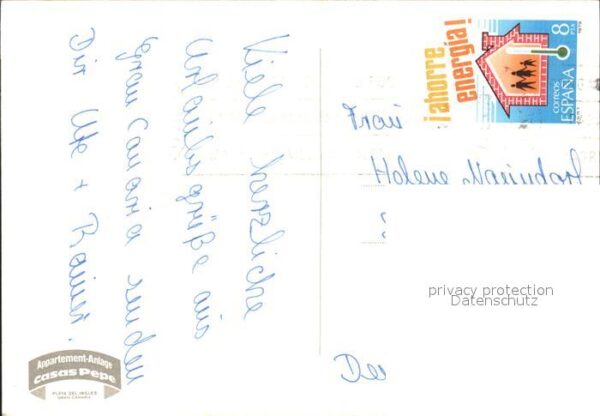 Viele herzliche
Urlaubsgrüße aus
Gran Canaria senden
Dir Ute + Rainer.
¡ahorre
energía!
8
PTA
correos
ESPAÑA
Frau
Helene
privacy protection
Datenschutz
Appartement-Anlage
Casas Pepe
PLAYA DEL INGLES
GRAN CANARIA